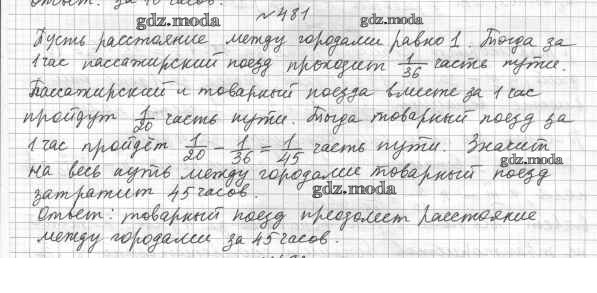 Ответ: за 40 часов.
gdz.moda
№481
gdz.moda
Пусть расстояние между городами равно 1. Тогда за
1 час пассажирский поезд проходит 1/36 часть пути.
Пассажирский и товарный поезда вместе за 1 час
пройдут 1/20 часть пути. Тогда товарный поезд за
1 час пройдёт 1/20 - 1/36 = 1/45 часть пути. Значит
gdz.moda
на весь путь между городами товарный поезд
затратит 45 часов.
gdz.moda
Ответ: товарный поезд преодолеет расстояние
между городами за 45 часов.